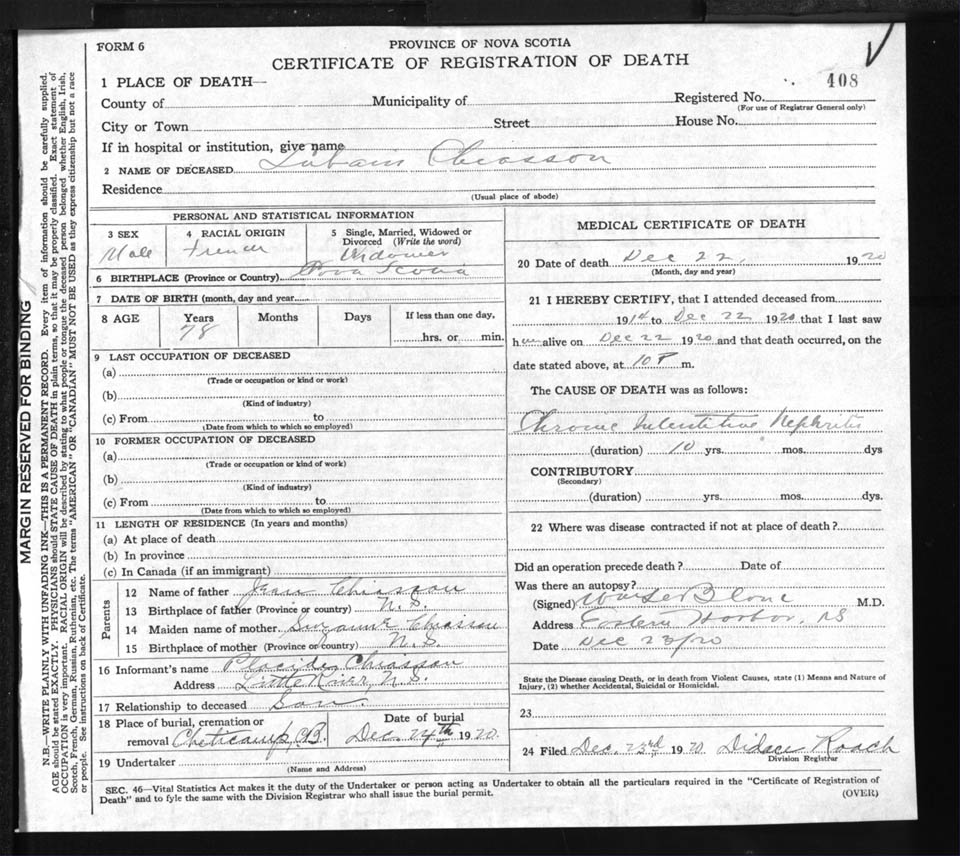 FORM 6
PROVINCE OF NOVA SCOTIA
CERTIFICATE OF REGISTRATION OF DEATH
408
1 PLACE OF DEATH—
County of Municipality of Registered No.
(For use of Registrar General only)
City or Town Street House No.
If in hospital or institution, give name
2 NAME OF DECEASED Chiasson
Residence
(Usual place of abode)
PERSONAL AND STATISTICAL INFORMATION
3 SEX 4 RACIAL ORIGIN 5 Single, Married, Widowed or
Divorced (Write the word)
Male French Widower
6 BIRTHPLACE (Province or Country) Nova Scotia
7 DATE OF BIRTH (month, day and year
8 AGE Years Months Days If less than one day,
78 hrs. or min.
9 LAST OCCUPATION OF DECEASED
(a)
(Trade or occupation or kind or work)
(b)
(Kind of industry)
(c) From to
(Date from which to which so employed)
10 FORMER OCCUPATION OF DECEASED
(a)
(Trade or occupation or kind of work)
(b)
(Kind of industry)
(c) From to
(Date from which to which so employed)
11 LENGTH OF RESIDENCE (In years and months)
(a) At place of death
(b) In province
(c) In Canada (if an immigrant)
Parents
12 Name of father Jean Chiasson
13 Birthplace of father (Province or country) N.S.
14 Maiden name of mother Suzanne Chiasson
15 Birthplace of mother (Province or country) N.S.
16 Informant's name Placide Chiasson
Address Little River, N.S.
17 Relationship to deceased Son.
18 Place of burial, cremation or Date of burial
removal Cheticamp, C.B. Dec. 24th 1920.
19 Undertaker
(Name and Address)
MEDICAL CERTIFICATE OF DEATH
20 Date of death Dec 22, 1920
(Month, day and year)
21 I HEREBY CERTIFY, that I attended deceased from
1914 to Dec 22 1920 that I last saw
him alive on Dec 22 1920 and that death occurred, on the
date stated above, at 10 P m.
The CAUSE OF DEATH was as follows:
Chronic Interstitial Nephritis
(duration) 10 yrs. mos. dys
CONTRIBUTORY
(Secondary)
(duration) yrs. mos. dys.
22 Where was disease contracted if not at place of death?
Did an operation precede death? Date of
Was there an autopsy?
(Signed) M.D.
Address Eastern Harbor, NS
Date Dec 23/20
State the Disease causing Death, or in death from Violent Causes, state (1) Means and Nature of
Injury, (2) whether Accidental, Suicidal or Homicidal.
23
24 Filed Dec. 23rd 1920 Roach
Division Registrar
SEC. 46—Vital Statistics Act makes it the duty of the Undertaker or person acting as Undertaker to obtain all the particulars required in the "Certificate of Registration of
Death" and to fyle the same with the Division Registrar who shall issue the burial permit.
(OVER)
MARGIN RESERVED FOR BINDING
N.B.—WRITE PLAINLY WITH UNFADING INK—THIS IS A PERMANENT RECORD. Every item of information should be carefully supplied.
AGE should be stated EXACTLY. PHYSICIANS should STATE CAUSE OF DEATH in plain terms, so that it may be properly classified. Exact statement of
OCCUPATION is very important. RACIAL ORIGIN will be described by stating to what people or tongue the deceased person belonged whether English, Irish,
Scotch, French, German, Russian, Ruthenian, etc. The terms "AMERICAN" OR "CANADIAN" MUST NOT BE USED as they express citizenship but not a race
or people. See instructions on back of Certificate.